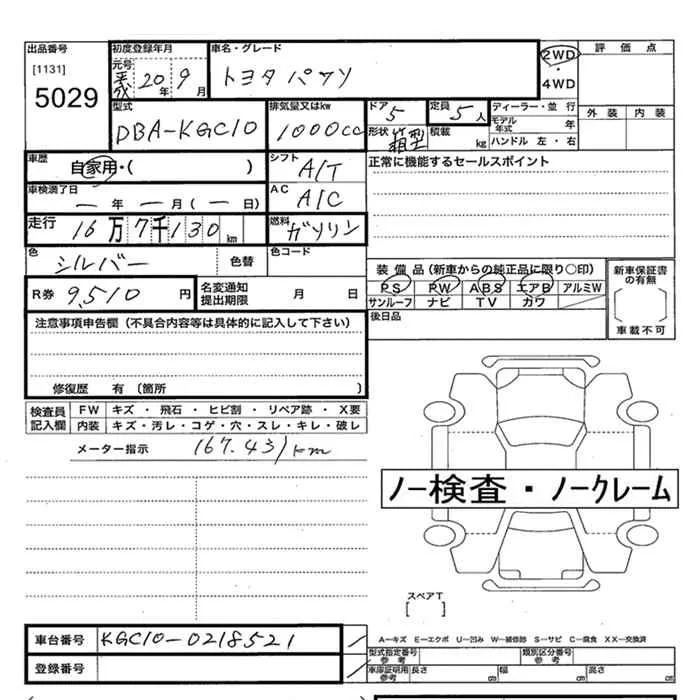 出品番号 初度登録年月 車名・グレード 2WD 評価点
[1131] 元号 ・
5029 平成 20年 9月 トヨタ パッソ 4WD
型式 排気量又はkw ドア 定員 ディーラー・並 行 外装 内装
DBA-KGC10 1000cc 5 5人 モデル年式 年
形状 箱型 積載 kg ハンドル 左・右
車歴 自家用・( ) シフト A/T 正常に機能するセールスポイント
車検満了日 AC
ー年ー月(ー日) A/C
走行 16万7千130km 燃料 ガソリン
色 シルバー 色替 色コード
装備品(新車からの純正品に限り○印) 新車保証書の有無
R券 9,510円 名変通知提出期限 月 日 PS PW ABS エアB アルミW
サンルーフ ナビ TV カワ
[ ]
後日品 車載不可
注意事項申告欄(不具合内容等は具体的に記入して下さい)
修復歴 有(箇所 )
検査員記入欄 FW キズ・飛石・ヒビ割・リペア跡・X要
内装 キズ・汚レ・コゲ・穴・スレ・キレ・破レ
メーター指示 167.431km
ノー検査・ノークレーム
スペアT
[ ]
A－キズ E－エクボ U－凹み W－補修跡 S－サビ C－腐食 XX－交換済
車台番号 KGC10-0218521 型式指定番号参考 類別区分番号参考
登録番号 車庫証明用参考 長さ cm 幅 cm 高さ cm